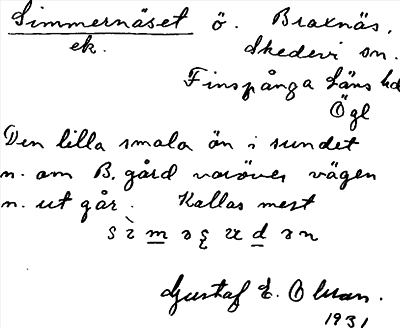 Simmernäset ö. Braxnäs,
ek. Skedevi sn.
Finspånga läns hd
Ögl
Den lilla smala ön i sundet
n. om B. gård varöver vägen
n. ut går. Kallas mest
Gustaf E. Olsson.
1931